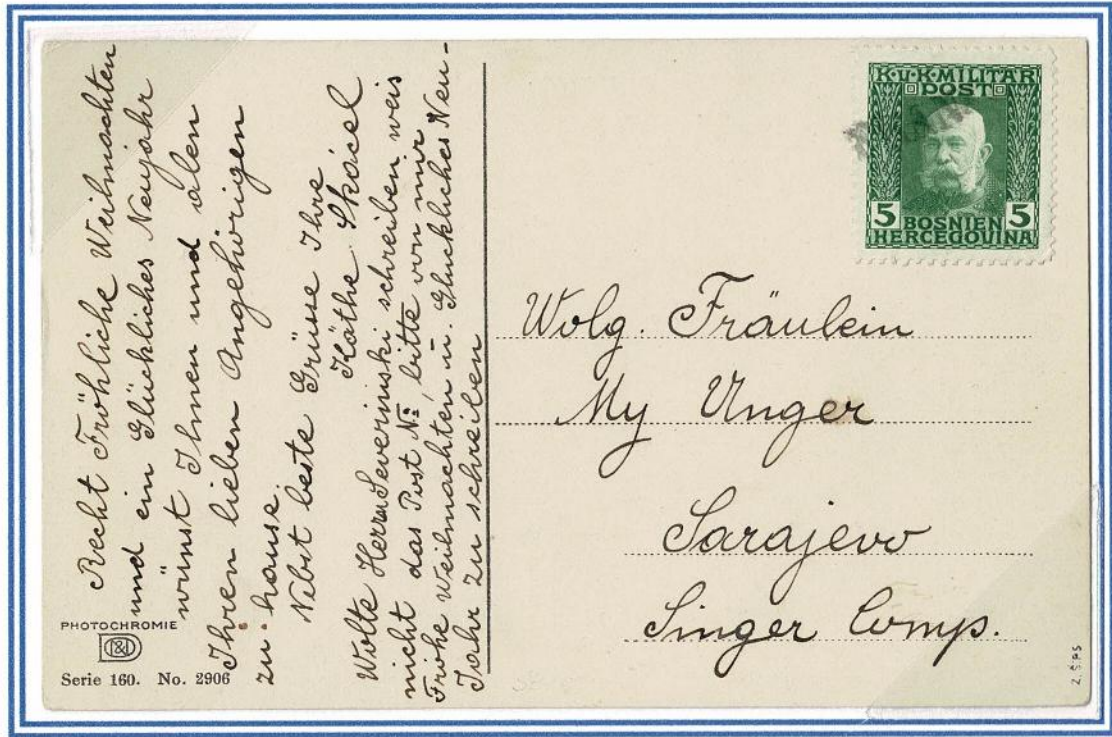 Recht Fröhliche Weihnachten
und ein Glückliches Neujahr
wünst Ihnen und alen
Ihren lieben Angehörigen
zu hause.
Nebst beste Grüsse Ihre
Käthe Skácel
Wolte Herrn Severinski schreiben weis
nicht das Post No, bitte von mir
Frohe Weihnachten u. Glückliches Neu-
Jahr zu schreiben
PHOTOCHROMIE
Serie 160. No. 2906
K.u.K. MILITÄR
POST
5 BOSNIEN 5
HERCEGOVINA
Wolg. Fräulein
My Unger
Sarajevo
Singer Comp.